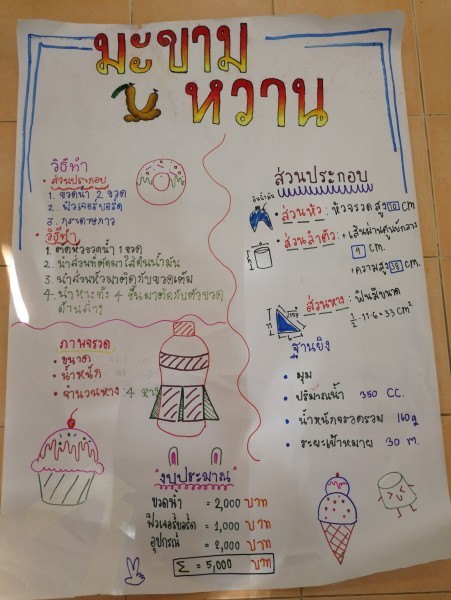 มะขาม
หวาน
วิธีทำ
• ส่วนประกอบ
1. ขวดน้ำ 2 ขวด
2. ฟิวเจอร์บอร์ด
3. กระดาษกาว
• วิธีทำ
1. ตัดหัวขวดน้ำ 1 ขวด
2. นำส่วนที่ตัดมาใส่ดินน้ำมัน
3. นำส่วนหัวมาติดกับขวดเต็ม
4. นำหางทั้ง 4 ชิ้นมาติดกับตัวขวด
ด้านล่าง
ภาพจรวด
• ขนาด
• น้ำหนัก
• จำนวนหาง : 4 หาง
ส่วนประกอบ
• ส่วนหัว : หัวจรวดสูง 10 CM
• ส่วนลำตัว : + เส้นผ่านศูนย์กลาง
9 CM.
+ ความสูง 38 CM.
• ส่วนหาง : ฟินมีขนาด
½ · 11 · 6 = 33 cm²
ฐานยิง
• มุม
• ปริมาณน้ำ 350 CC.
• น้ำหนักจรวดรวม 160g
• ระยะเป้าหมาย 30 m.
งบประมาณ
ขวดน้ำ = 2,000 บาท
ฟิวเจอร์บอร์ด = 1,000 บาท
อุปกรณ์ = 2,000 บาท
Σ = 5,000 บาท